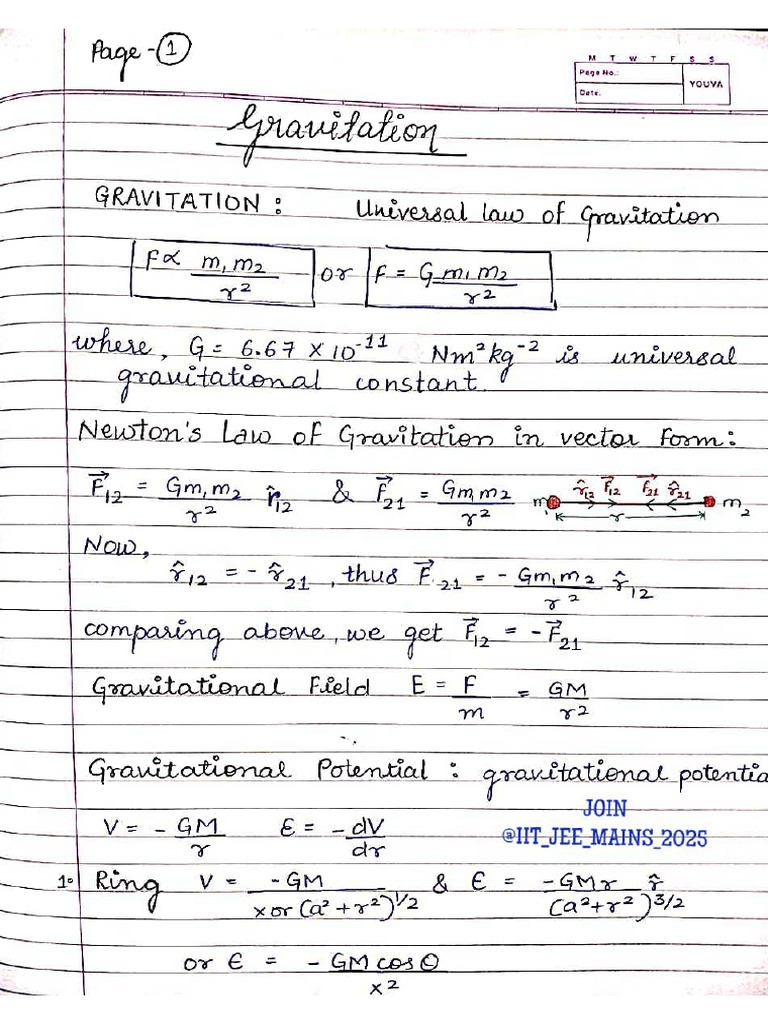 Page - ①
M T W T F S S
Page No.:
Date:
YOUVA
Gravitation
GRAVITATION : Universal law of Gravitation
F ∝ m₁m₂/r² or F = G m₁m₂/r²
where, G = 6.67 × 10⁻¹¹ Nm²kg⁻² is universal
gravitational constant.
Newton's Law of Gravitation in vector form:
F⃗₁₂ = Gm₁m₂/r² r̂₁₂ & F⃗₂₁ = Gm₁m₂/r²
m₁ r̂₁₂ F⃗₁₂ F⃗₂₁ r̂₂₁ m₂
r
Now,
r̂₁₂ = - r̂₂₁, thus F⃗₂₁ = - Gm₁m₂/r² r̂₁₂
comparing above, we get F⃗₁₂ = - F⃗₂₁
Gravitational Field E = F/m = GM/r²
Gravitational Potential : gravitational potentia
V = - GM/r E = - dV/dr
JOIN
@IIT_JEE_MAINS_2025
1° Ring V = -GM/(x or (a²+r²)^1/2) & E = -GMr/(a²+r²)^3/2 r̂
or E = - GM cosθ/x²